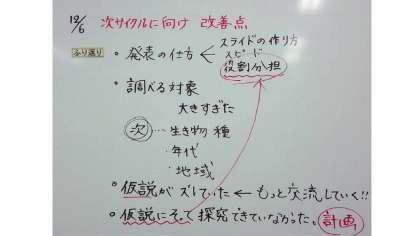 12/6 次サイクルに向け 改善点
ふり返り
・発表の仕方 ← スライドの作り方
スピード
役割分担
・調べる対象
大きすぎた
次 … 生き物 種
・年代
・地域
・仮説がズレていた ← もっと交流していく!!
・仮説にそって探究できていなかった。計画